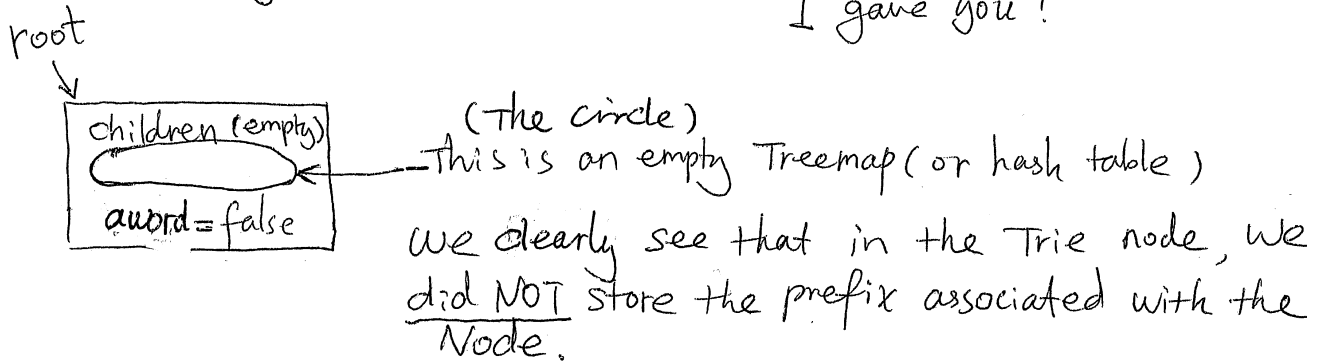 I gave you!
root
children (empty)
(The circle)
This is an empty Treemap (or hash table)
aword = false
we clearly see that in the Trie node, we
did NOT store the prefix associated with the
Node.